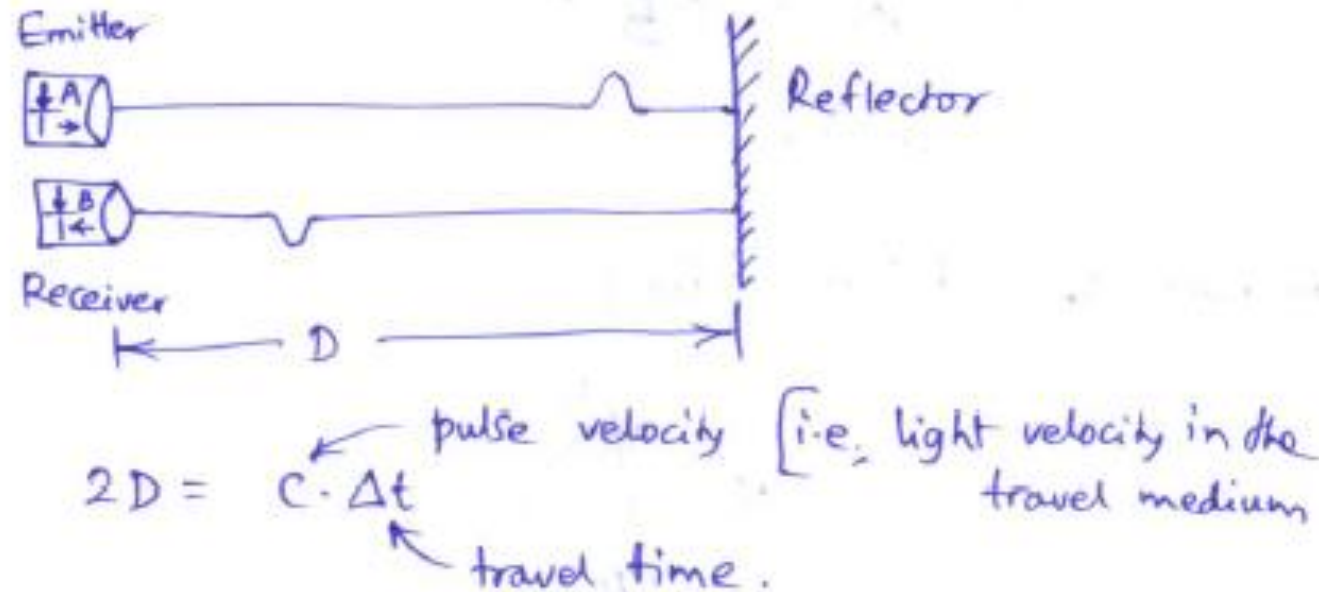 Emitter
A
Reflector
B
Receiver
D
pulse velocity [i.e, light velocity in the
travel medium
2D = C · Δt
travel time.